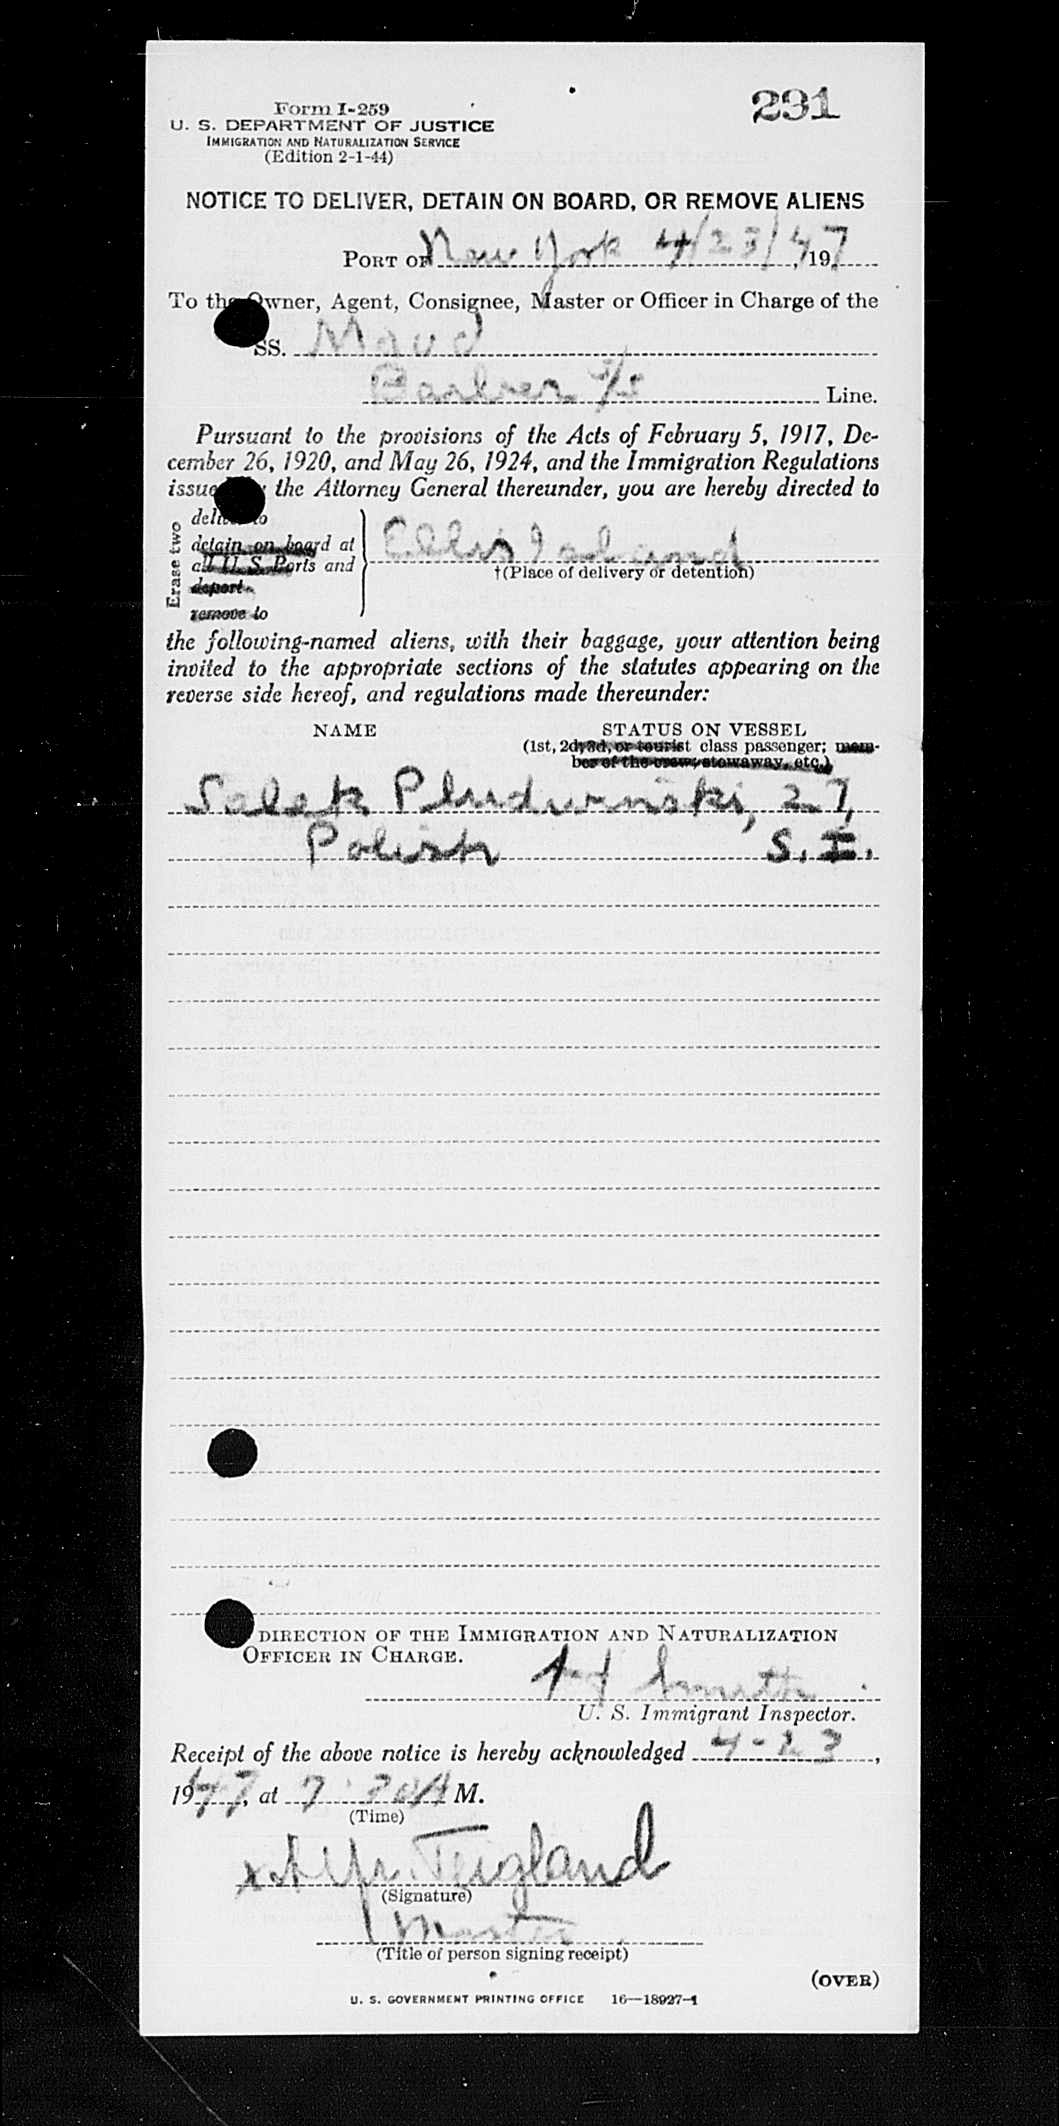 Form I-259
U. S. DEPARTMENT OF JUSTICE
IMMIGRATION AND NATURALIZATION SERVICE
(Edition 2-1-44)
291
NOTICE TO DELIVER, DETAIN ON BOARD, OR REMOVE ALIENS
PORT OF New York 4/23/47, 19
To the Owner, Agent, Consignee, Master or Officer in Charge of the
SS. Maud
Barber S/S Line.
Pursuant to the provisions of the Acts of February 5, 1917, De-
cember 26, 1920, and May 26, 1924, and the Immigration Regulations
issued by the Attorney General thereunder, you are hereby directed to
Erase two
deliver to
detain on board at
all U. S. Ports and
deport
remove to
Ellis Island
†(Place of delivery or detention)
the following-named aliens, with their baggage, your attention being
invited to the appropriate sections of the statutes appearing on the
reverse side hereof, and regulations made thereunder:
NAME STATUS ON VESSEL
(1st, 2d, 3d, or tourist class passenger; mem-
ber of the crew, stowaway, etc.)
Salek Pludwinski, 27,
Polish S. I.
DIRECTION OF THE IMMIGRATION AND NATURALIZATION
OFFICER IN CHARGE.
Smith
U. S. Immigrant Inspector.
Receipt of the above notice is hereby acknowledged 4-23,
1947, at 7:30 A M.
(Time)
x Alfr. Teigland
(Signature)
Master
(Title of person signing receipt)
(OVER)
U. S. GOVERNMENT PRINTING OFFICE 16—18927-1